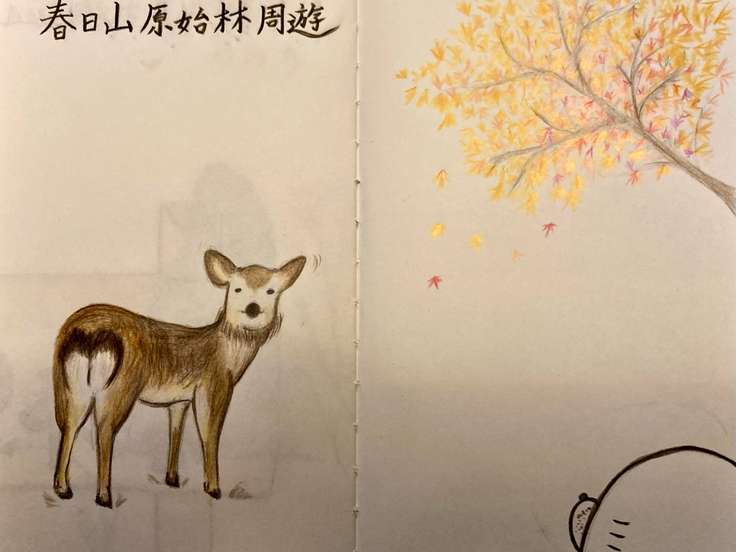 春日山原始林周遊